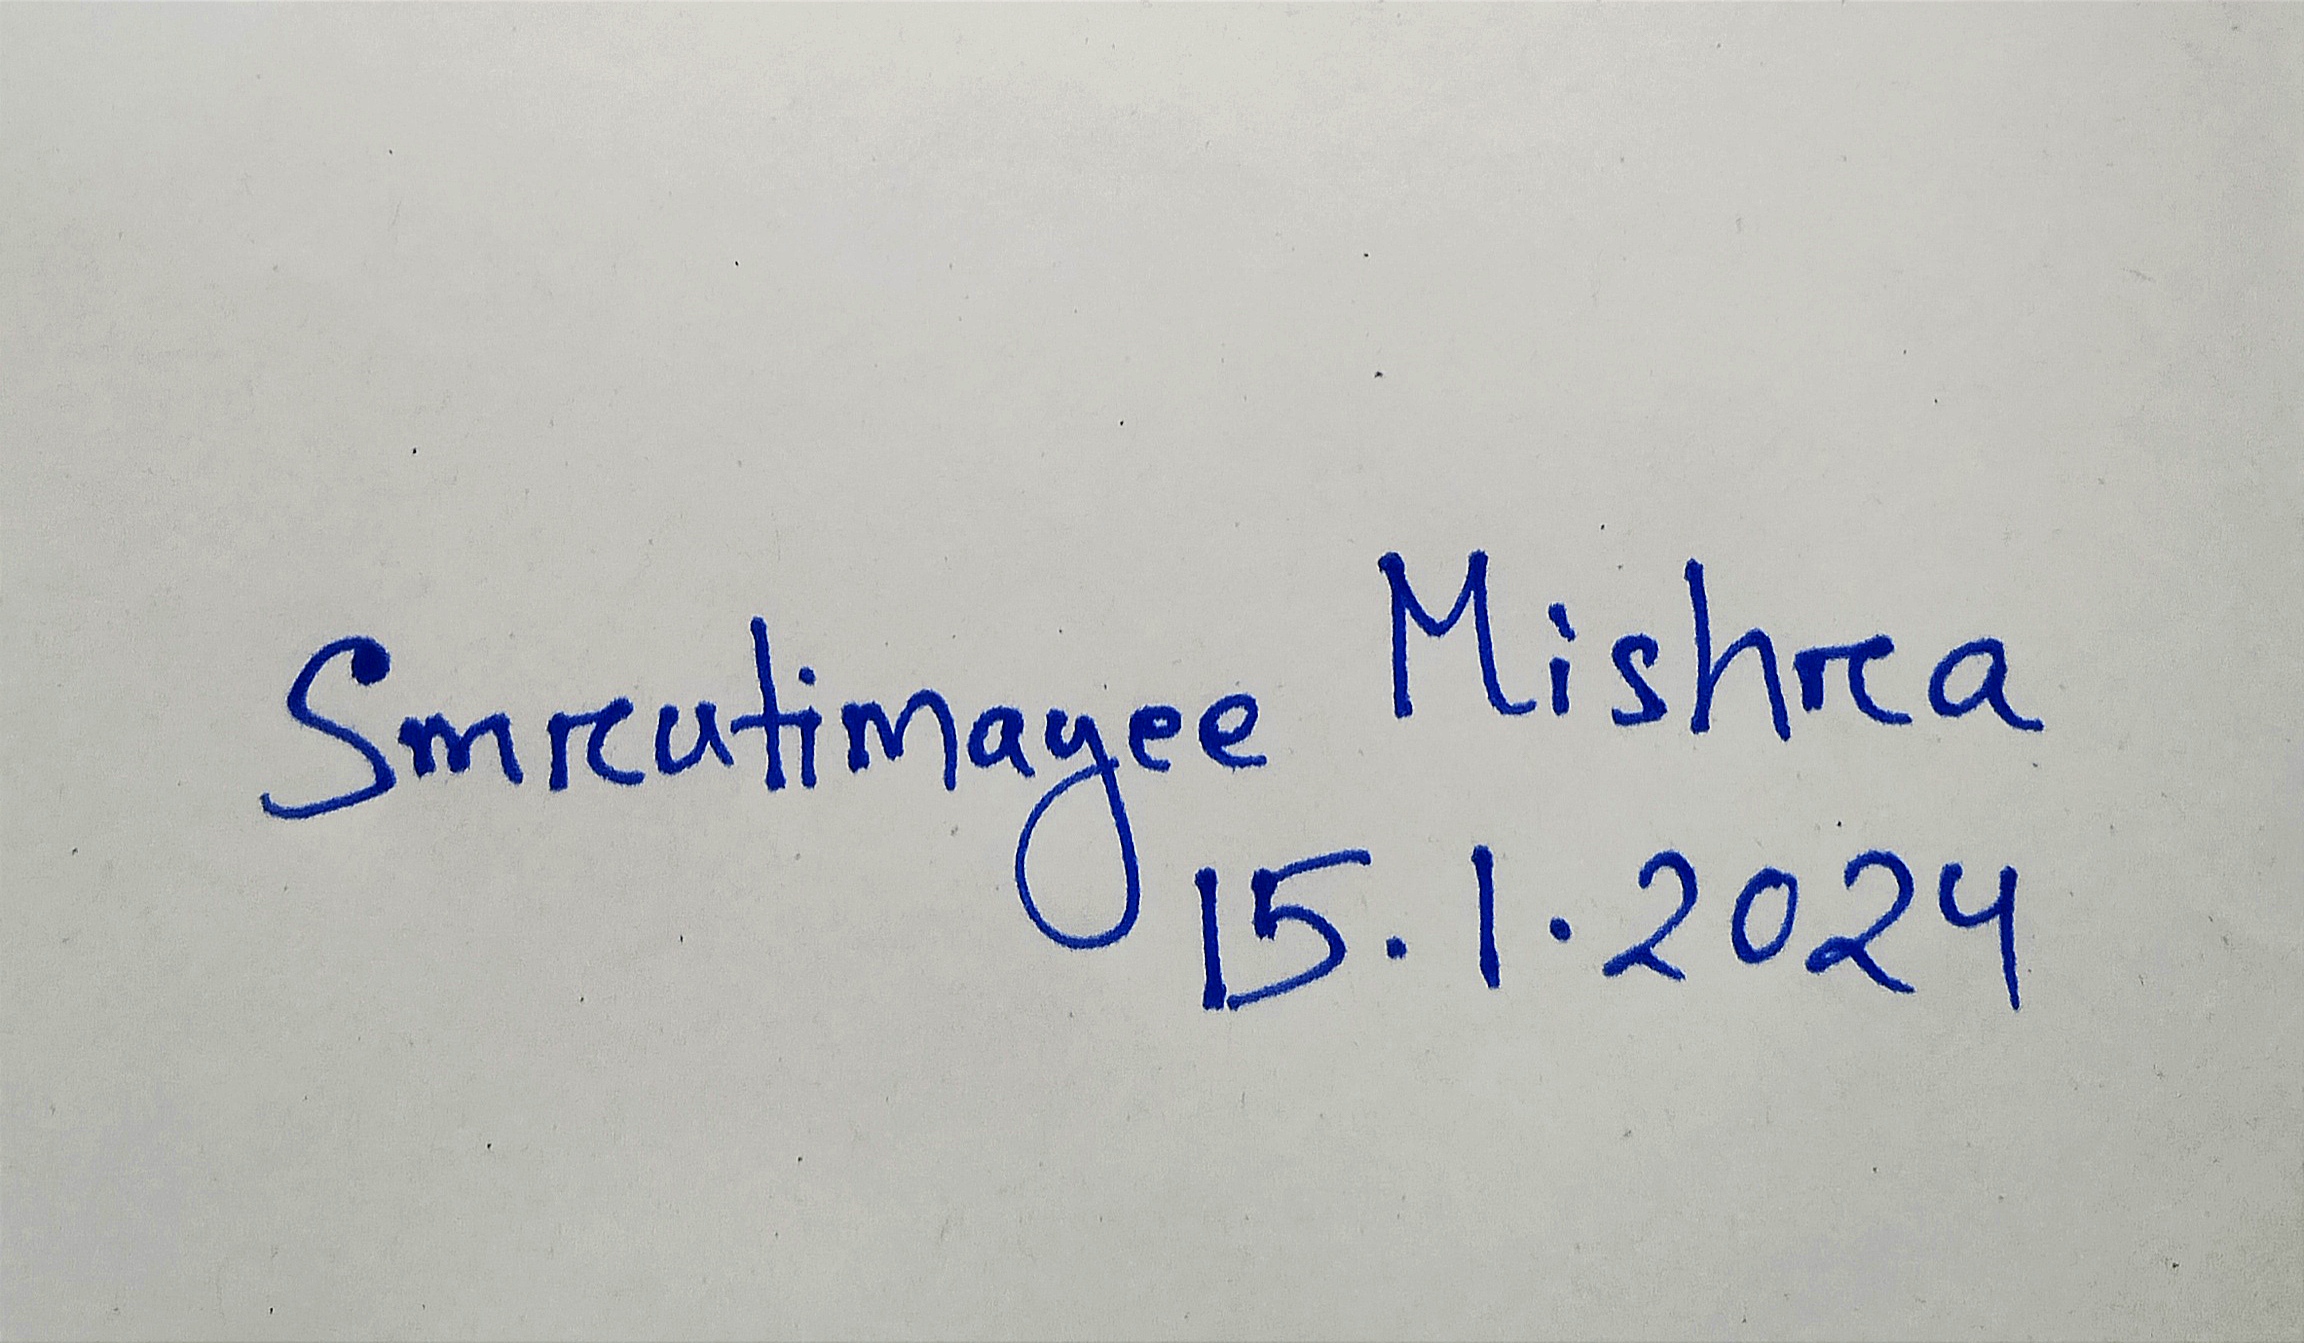 Smrutimayee Mishra
15.1.2024